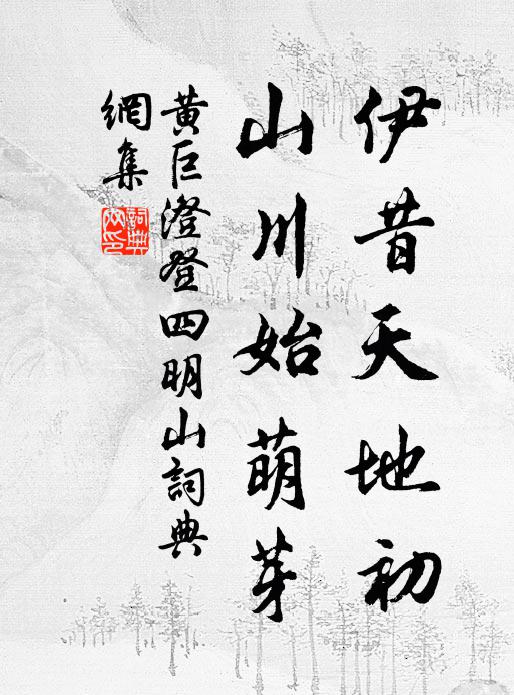 伊昔天地初
山川始萌芽
黄巨澄登四明山詞典
網集
詞典網印